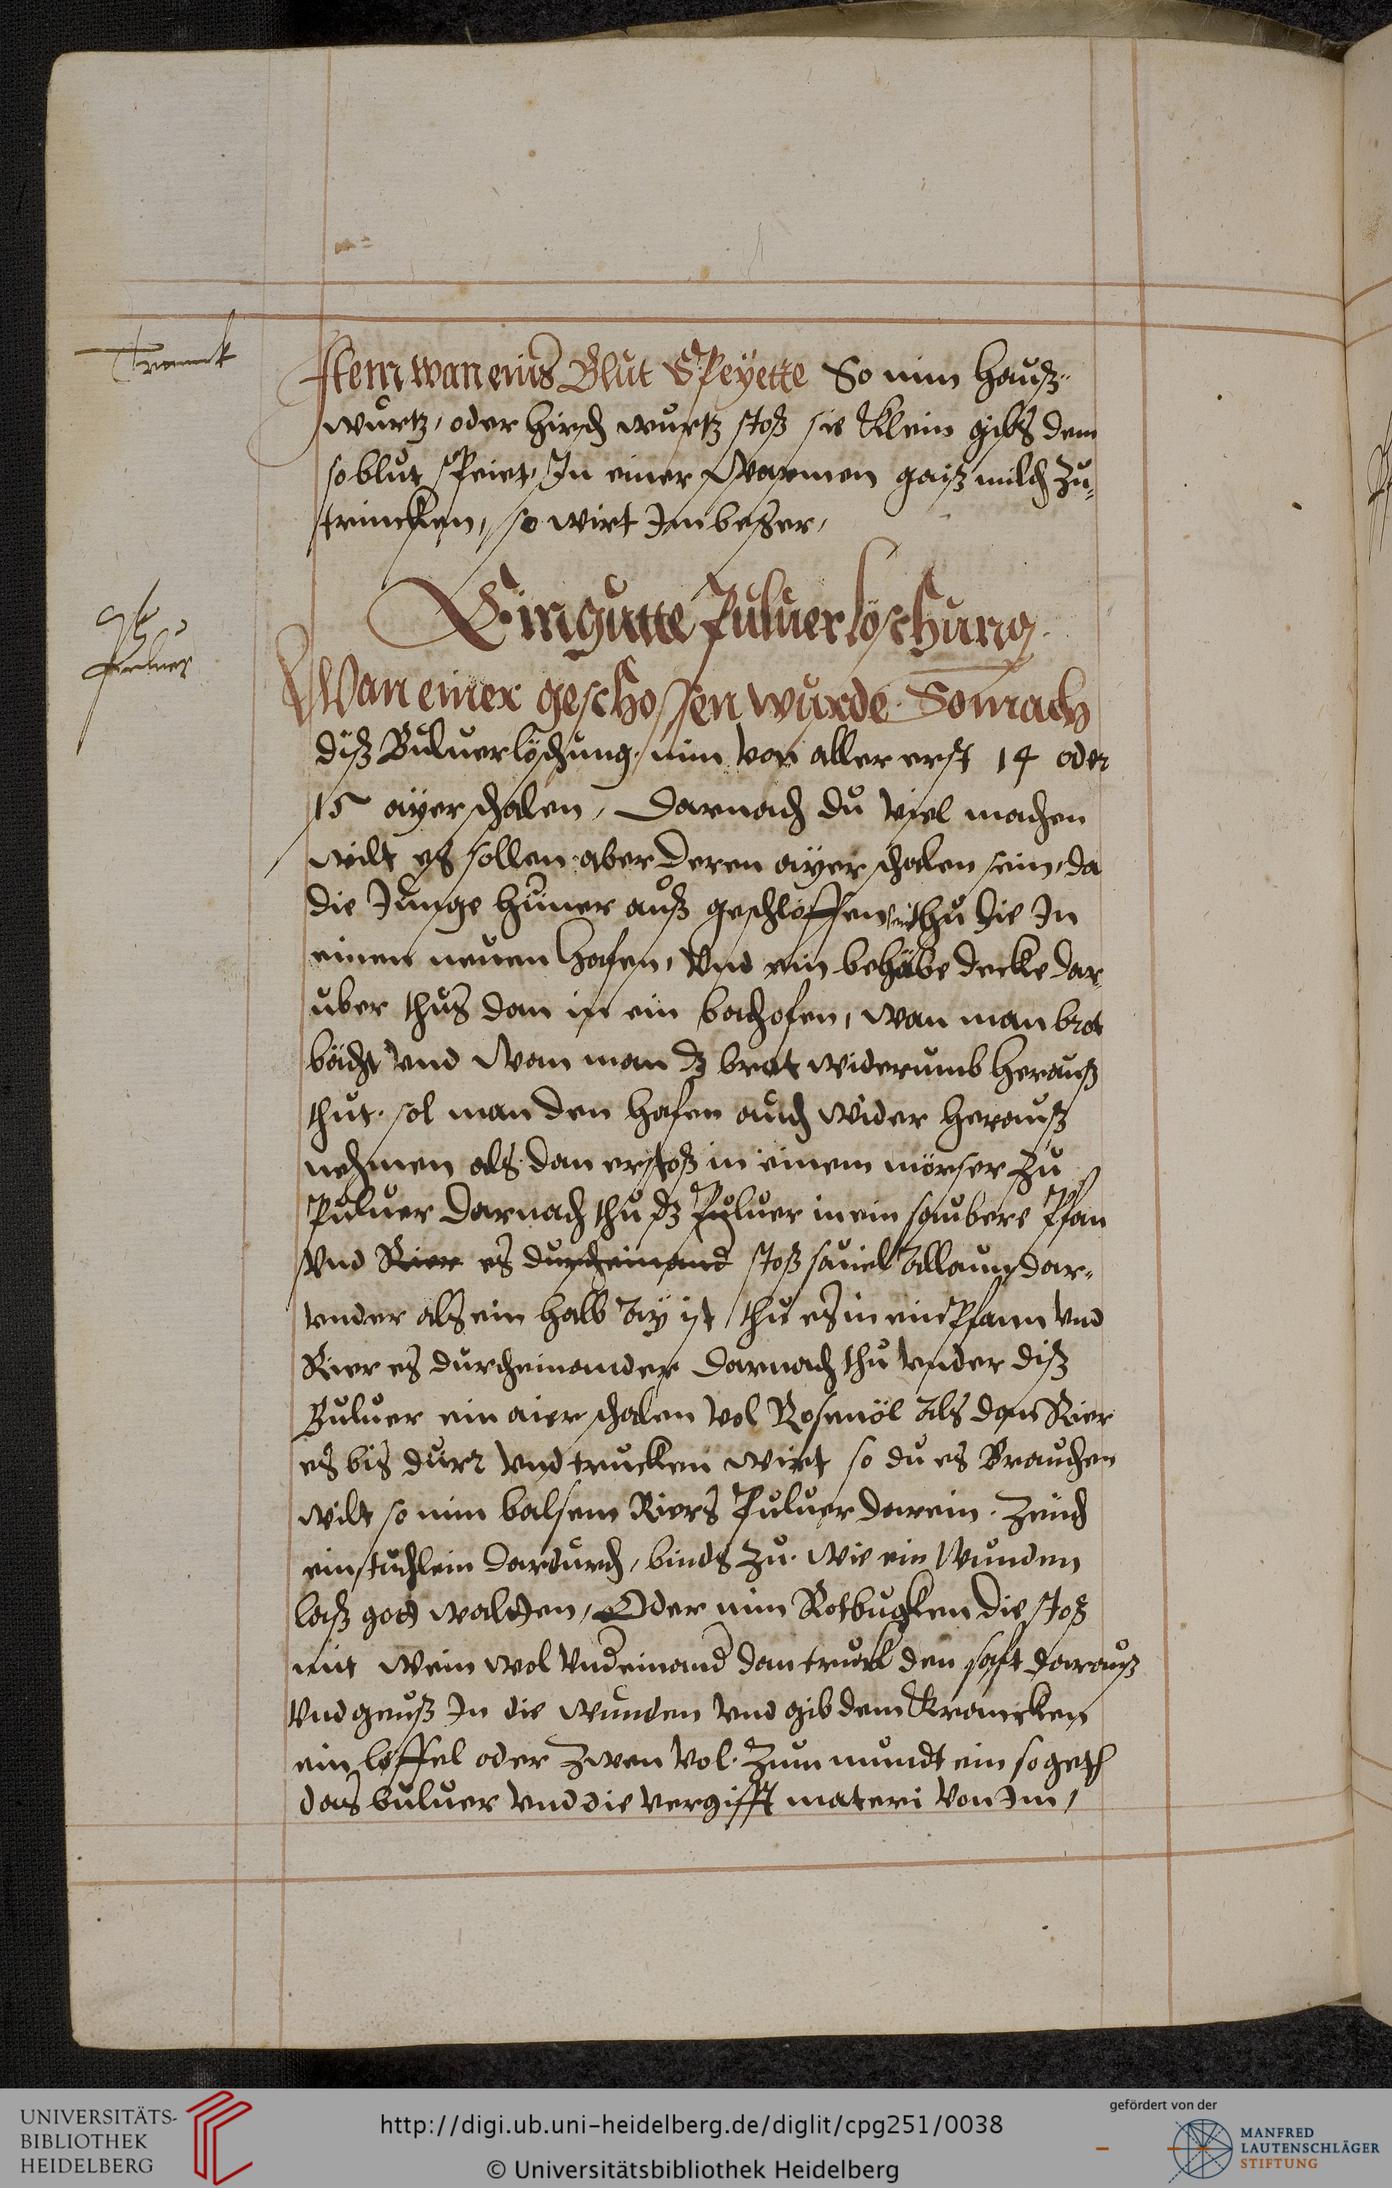 Tranck
Item wan eins Blut Speyette So nim hauß-
wurtz, oder hirch wurtz stoß sie klein gibs dem
so blut speiet, In einer warmen gaiß milch zu-
trincken, so wirt Im beßer,
Ein gutte Puluerlöschung.
Puluer
Wan einer geschossen wurde So mach
diß Buluerlöschung, nim von aller erst 14 oder
15 ayer schalen, Darnach du viel machen
wilt es sollen aber deren ayer schalen sein, da
die Junge hüner auß geschloffen sint thu die In
einen neuen hafen, vnd ein behäbe decke dar
uber thus dan in ein bachofen, wan man brot
bächt vnd wan man dz brot widerumb herauß
thut. sol man den hafen auch wider herauß
nehmen als dan erstoß in einem mörser zu
Puluer Darnach thu dz Puluer in ein saubere Pfan
vnd Rier es durcheinand stoß sauiel Allaun dar-
vnder als ein halb ay ist thu es in ein Pfann vnd
Rier es durcheinander Darnach thu vnder diß
Buluer ein aier schalen vol Rosenöl als dan Rier
es bis durr vnd trucken wirt so du es Brauchen
wilt so nim balsem Riers Puluer darein. Zeuch
ein tuchlein dardurch, binds zu. wie ein wunden
laß gott walten, Oder nim Rotbugken die stoß
mit wein wol vndeinand dan truck den saft darauß
vnd geuß In die wunden vnd gib dem krancken
ein löffel oder zwen vol. zum mundt ein so geth
das buluer vnd die vergifft materi von Im,
UNIVERSITÄTS-
BIBLIOTHEK
HEIDELBERG
http://digi.ub.uni-heidelberg.de/diglit/cpg251/0038
© Universitätsbibliothek Heidelberg
gefördert von der
MANFRED
LAUTENSCHLÄGER
STIFTUNG